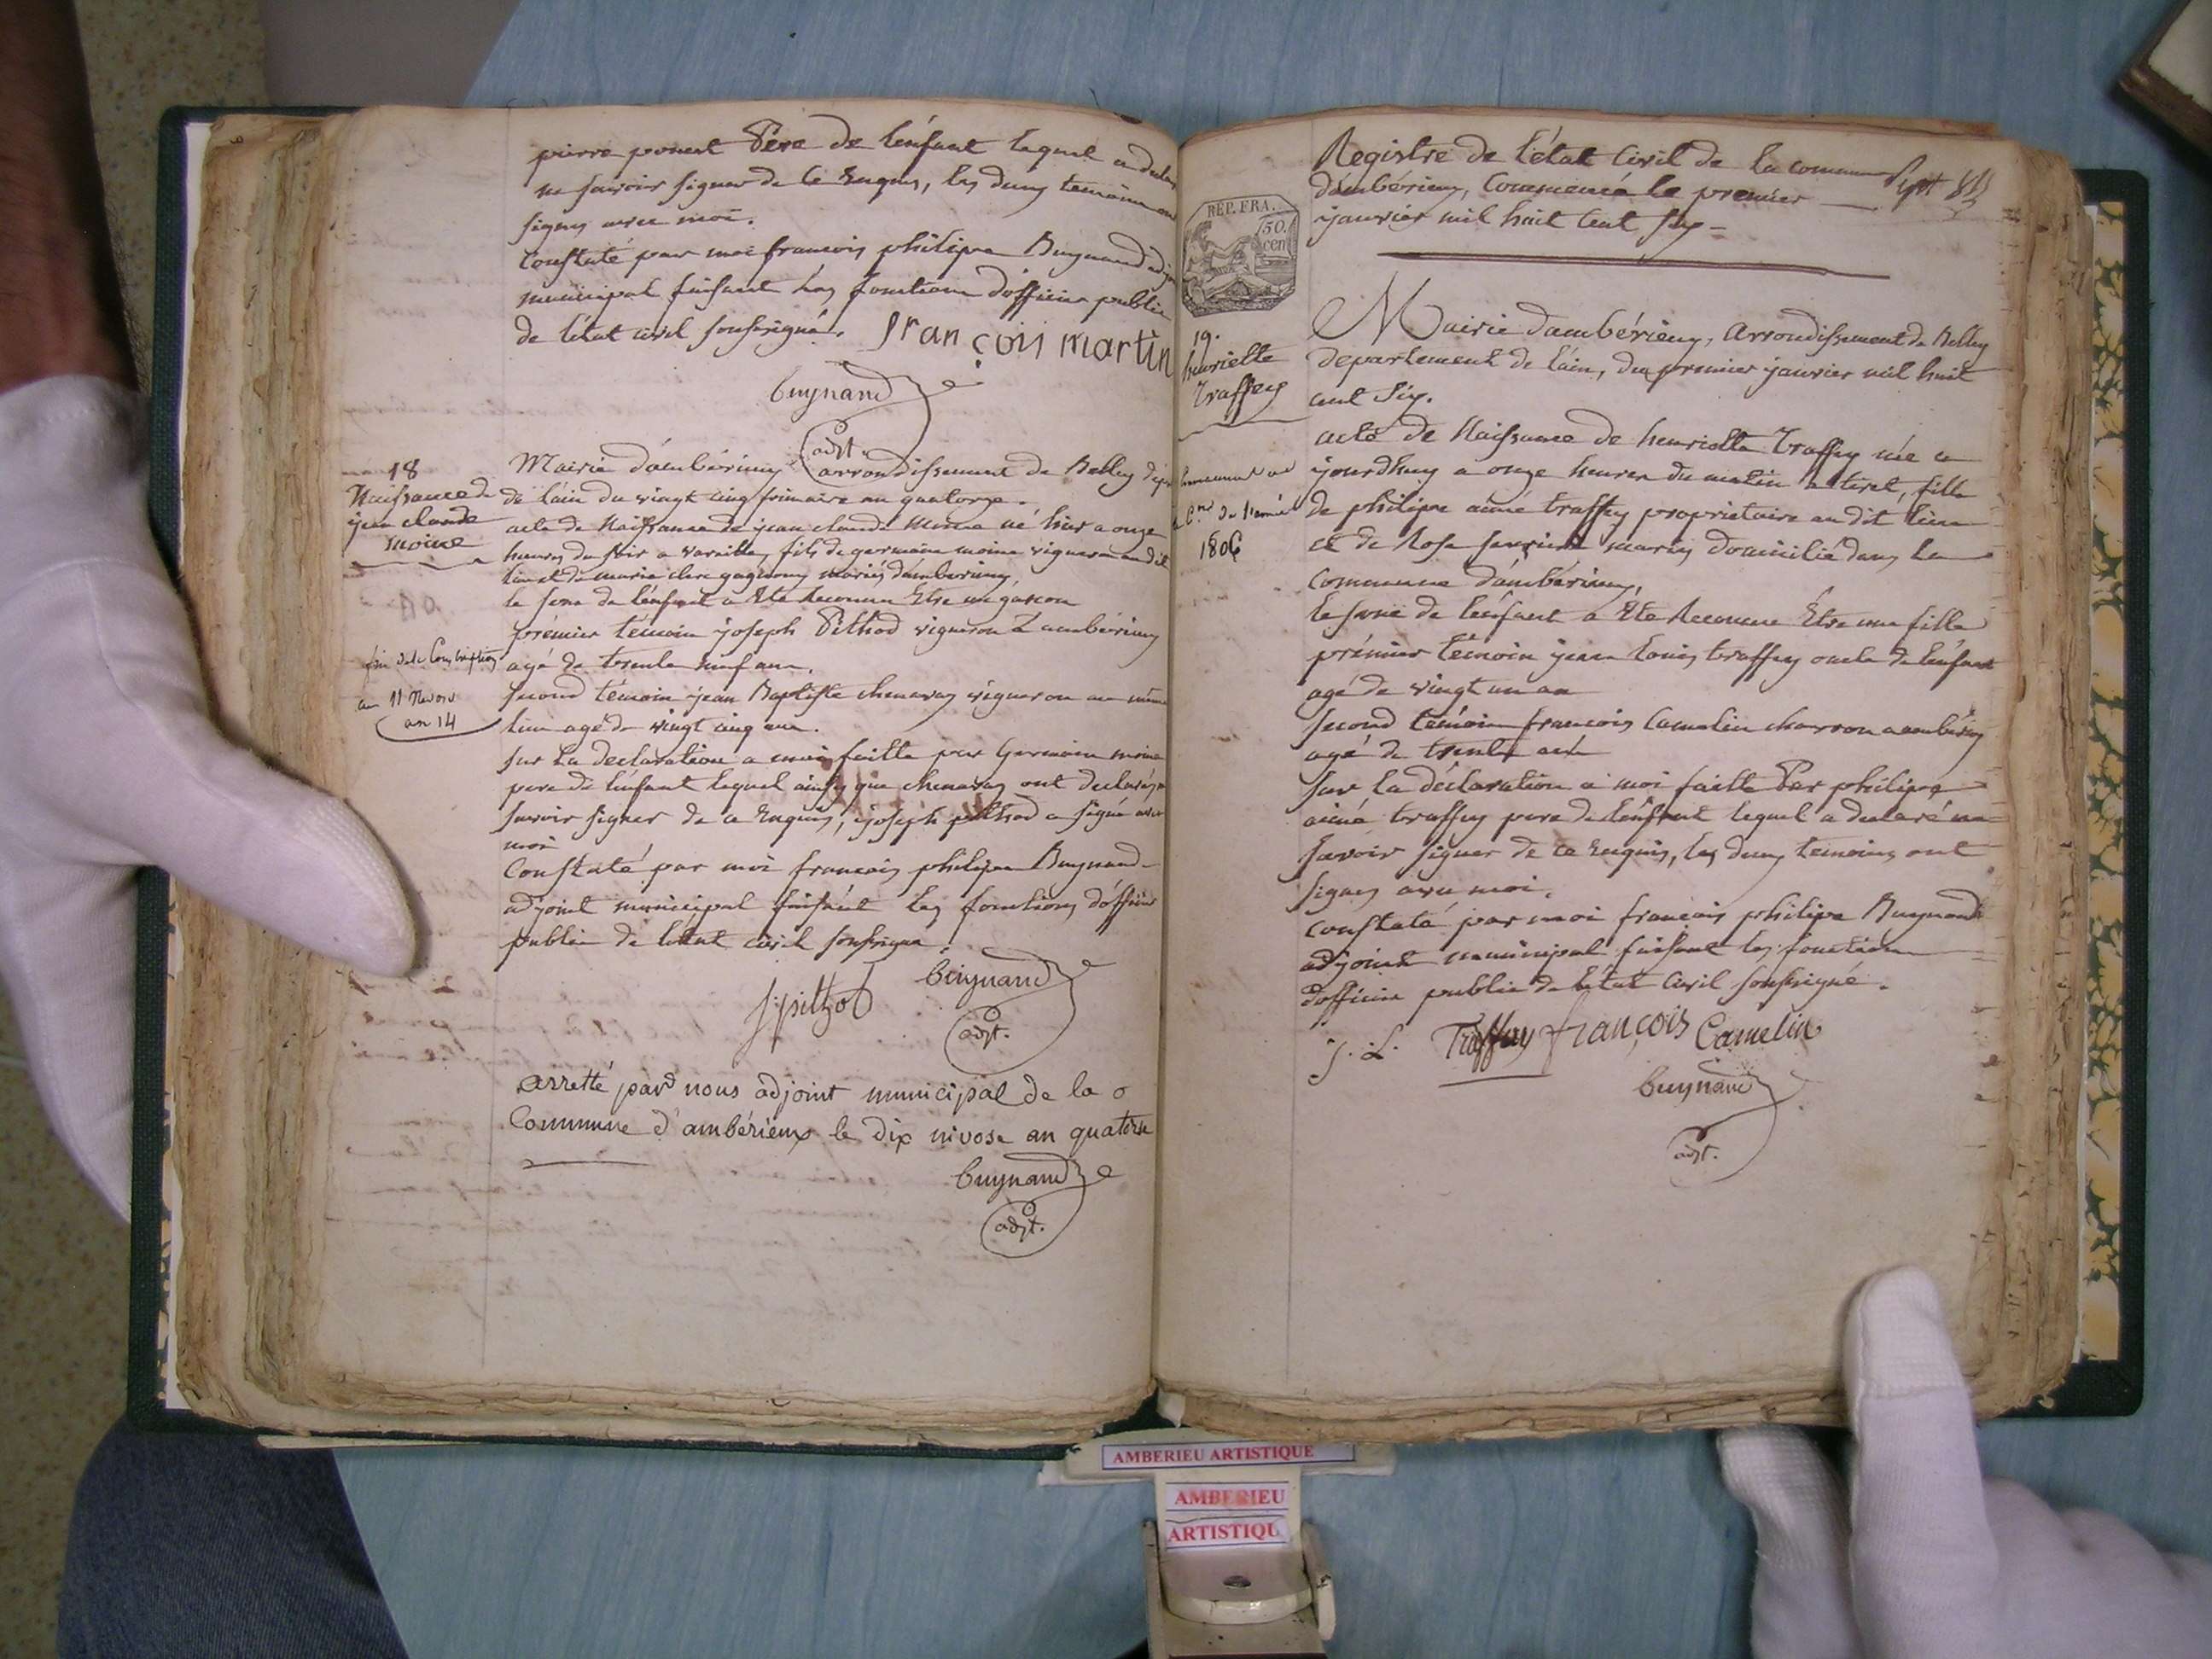 pierre ponent Père de l'enfant lequel a declaré
ne savoir signer de ce Enquis, les deux temoins ont
signes avec moi.
Constaté par moi francois philipe Buynand adjoint
municipal faisant les fonctions d'officier public
de l'état civil soussigné. françois martin
Buynand
adjt.
18
Naissance de
jean claude
moine
fin de la Conscription
au 11 Nivose
an 14
Mairie d'ambérieux arrondissement de Belley dépt
de l'ain du vingt cinq frimaire an quatorze.
acte de Naissance de jean claude Moine né hier a onze
heures du soir a Vareilles, fils de germain moine vigneron au dit
lieu et de marie clere gagneux mariés d'ambérieux,
le sexe de l'enfant a Eté Reconnu Etre un garcon
prémier témoin joseph Pilhod vigneron à ambérieux
agé de trente neuf ans.
second témoin jean Baptiste chenavaz vigneron au même
lieu agé de vingt cinq ans.
sur la declaration a moi faitte par Germain moine
pere de l'enfant lequel ainsy que chenavaz ont declaré ne
savoir signer de ce Enquis, joseph pilhod a signé avec
moi
Constaté par moi francois philipe Buynand
adjoint municipal faisant les fonctions d'officier
public de l'état civil soussigné.
J. pilhod Buynand
adjt.
arretté par nous adjoint municipal de la
Commune d'ambérieux le dix nivose an quatorze
Buynand
adjt.
Registre de l'état Civil de la commune
d'ambérieux, Commencé le premier
janvier mil huit Cent six
Sept
REP. FRA.
50.
cen
19.
henriette
traffey
1806
Mairie d'ambérieux, Arrondissement de Belley
departement de l'ain, du premier janvier mil huit
cent Six.
acte de Naissance de henriette traffey née ce
jourdhuy a onze heures du matin a tiret, fille
de philipe aimé traffey proprietaire au dit lieu
et de Rose mariés domicilié dans la
commune d'ambérieux,
le sexe de l'enfant a Eté Reconnu Etre une fille
prémier témoin jean louis traffey oncle de l'enfant
agé de vingt un an
second témoin francois Camelin charron a ambérieux
agé de trente ans
sur la déclaration a moi faitte Par philipe
aimé traffey pere de l'enfant lequel a declaré ne
savoir signer de ce Enquis, les deux temoins ont
signes avec moi.
constaté par moi francois philipe Buynand
adjoint municipal faisant les fonctions
d'officier public de l'état Civil soussigné.
J. L. Traffey françois Camelin
Buynand
adjt.
AMBERIEU ARTISTIQUE
AMBERIEU
ARTISTIQU